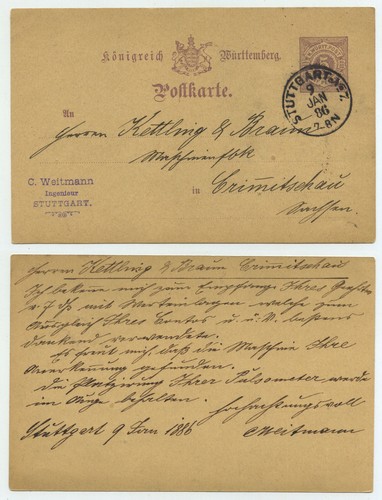 Königreich Württemberg.
Postkarte.
STUTTGART
9
JAN
86
2-8N
An
Herren Kettling & Braun
Maschinenfbk
in Crimmitschau
Sachsen.
C. Weitmann
Ingenieur
STUTTGART.
Herren Kettling & Braun Crimmitschau
Ich bekenne mich zum Empfange Ihres Geehrten
v. 7 ds. mit Werteinlagen welche zum
Ausgleich Ihres Contos u. ü. V. bestens
dankend verwendete.
Es freut mich, daß die Maschine Ihre
Anerkennung gefunden.
die Plazierung Ihrer Pulsometer werde
im Auge behalten.
Hochachtungsvoll
Stuttgart 9 Jan 1886 CWeitmann